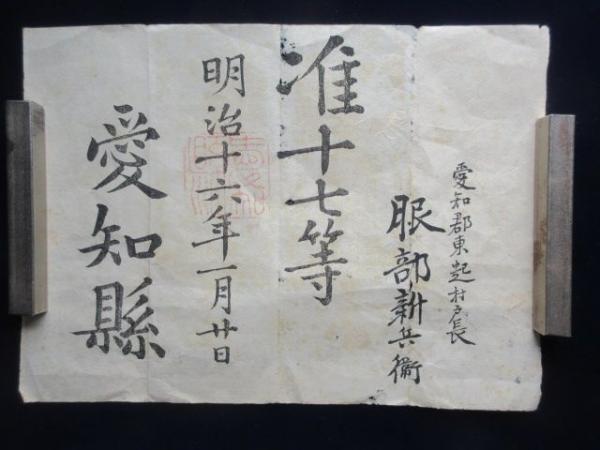 愛知郡東起村戸長
服部新兵衛
准十七等
明治十六年一月廿日
愛知縣